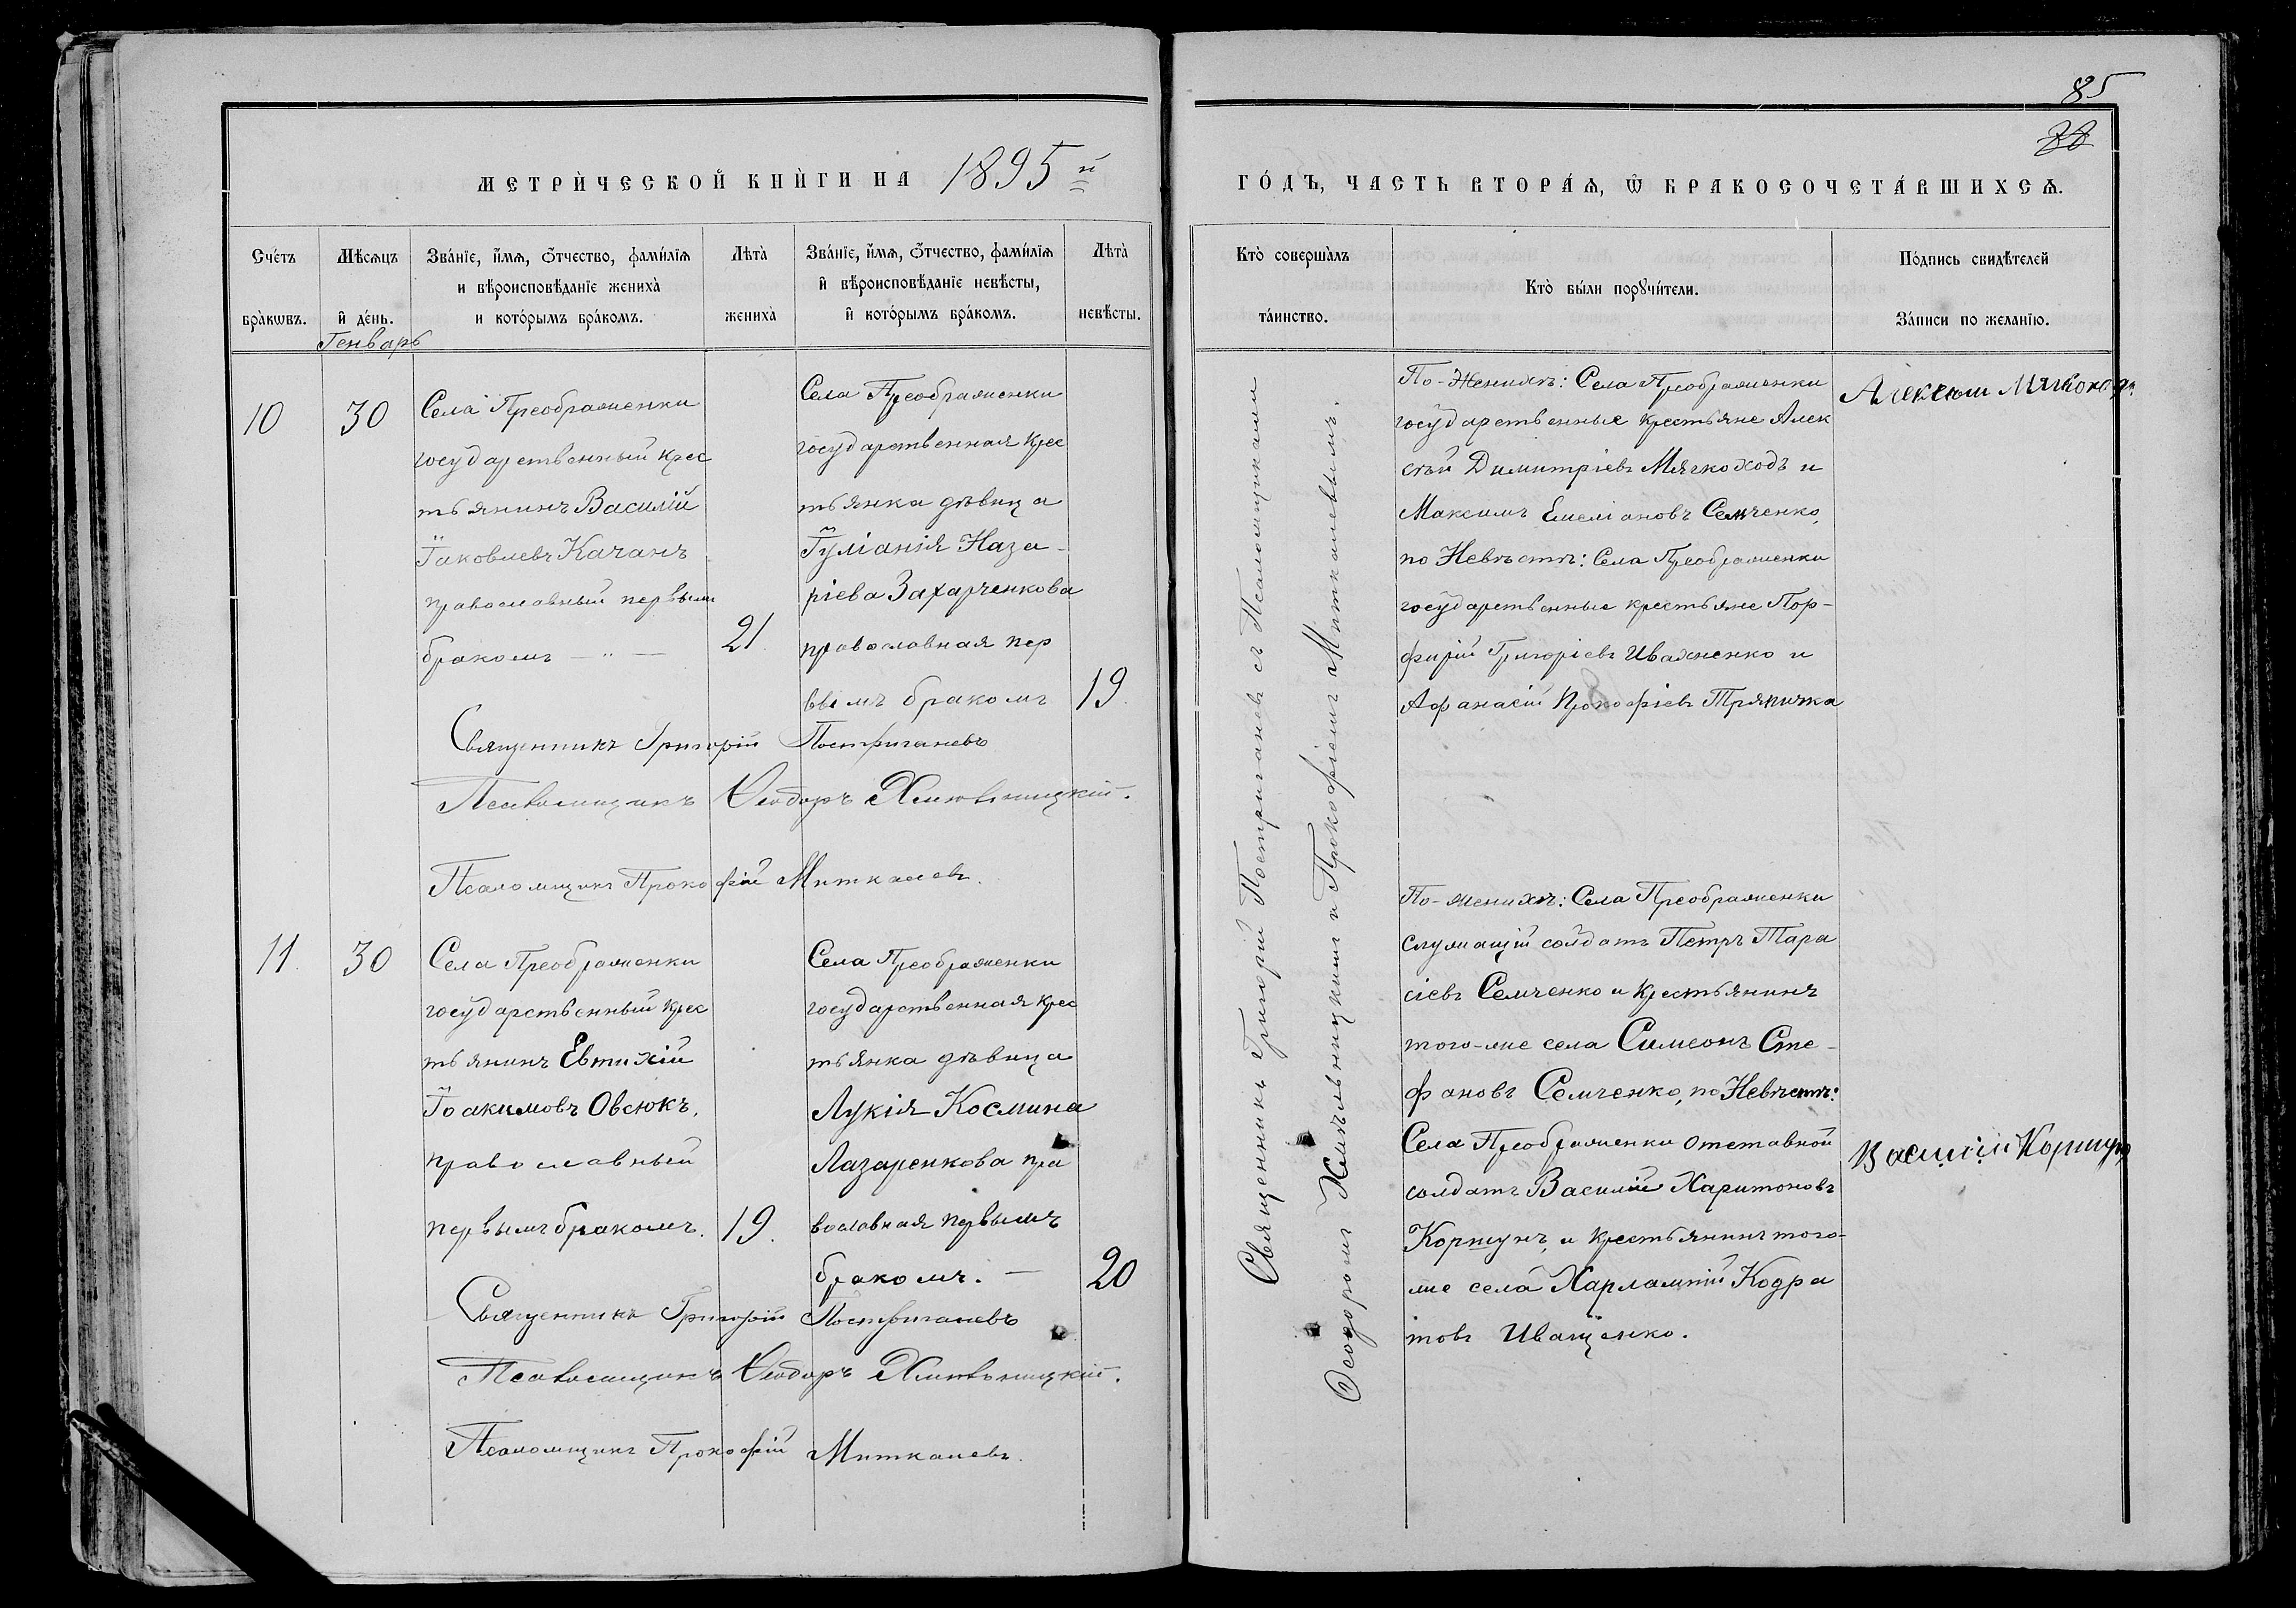 85
28
МЕТРИ́ЧЕСКОЙ КНИ́ГИ НА 1895й
ГО́ДЪ, ЧАСТЬ ВТОРА́Ѧ, Ѿ БРАКОСОЧЕТА́ВШИХСѦ.
Сче́тъ бра̀кѡвъ.
Мѣ́сѧцъ и҆ де́нь.
Генварь
Зва́нїе, и҆́мѧ, ѻ҆́тчество, фами́лїѧ
и вѣроисповѣ́данїе жениха̀
и кото́рымъ бра́комъ.
Лѣта̀ жениха̀
Зва́нїе, и҆́мѧ, ѻ҆́тчество, фами́лїѧ
и҆ вѣроисповѣ́данїе невѣ́сты,
и҆ кото́рымъ бра́комъ.
Лѣта̀ невѣ́сты.
Кто̀ соверша̀лъ та́инство.
Кто̀ бы́ли порꙋчи́тели.
По́дпись свидѣ́телей
За́писи по жела́нїю.
10
30
Села Преображенки
государственный крес
тьянинъ Василій
Іаковлевъ Качанъ
православный первымъ
бракомъ — " —
21.
Села Преображенки
государственная крес
тьянка дѣвица
Іуліанія Наза-
ріева Захарченкова
православная пер
вымъ бракомъ
19.
Священникъ Григорій Постриганевъ
Псаломщикъ Ѳеодоръ Хмѣльницкій.
Псаломщикъ Прокофій Миткалевъ.
11.
30
Села Преображенки
государственный крес
тьянинъ Евтихій
Іоакимовъ Овсюкъ,
православный
первымъ бракомъ.
19.
Села Преображенки
государственная крес
тьянка дѣвица
Лукія Космина
Лазаренкова пра
вославная первымъ
бракомъ. —
20
Священникъ Григорій Постриганевъ
Псаломщикъ Ѳеодоръ Хмѣльницкій.
Псаломщикъ Прокофій Миткалевъ.
Священникъ Григорій Постриганевъ съ Псаломщиками
Ѳеодоромъ Хмѣльницкимъ и Прокофіемъ Миткалевымъ.
По-Женихѣ: Села Преображенки
государственные крестьяне Алек
сѣй Димитріевъ Мягкоходъ и
Максимъ Емеліановъ Семченко,
по Невѣстѣ: Села Преображенки
государственные крестьяне Пор-
фирій Григоріевъ Ивахненко и
Афанасій Прокофіевъ Тряпичка
Алексѣй Мягкоходъ
По-женихѣ: Села Преображенки
служащій солдатъ Петръ Тара
сіевъ Семченко и крестьянинъ
того-же села Симеонъ Сте-
фановъ Семченко, по Невѣстѣ:
Села Преображенки отставной
солдатъ Василій Харитоновъ
Коршунъ, и крестьянинъ того-
же села Харлампій Кодра
товъ Иващенко.
Василій Коршунъ